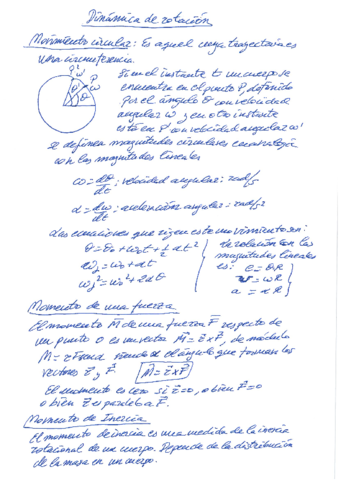 Dinámica de rotación
Movimiento circular: Es aquel cuya trayectoria es
una circunferencia.
P' ω' P ω
θ
Si en el instante t un cuerpo se
encuentra en el punto P, definido
por el ángulo θ con velocidad
angular ω y en otro instante
está en P' con velocidad angular ω'
se definen magnitudes circulares en analogía
con las magnitudes lineales
ω = dθ/dt ; velocidad angular: rad/s
α = dω/dt ; aceleración angular = rad/s²
Las ecuaciones que rigen este movimiento son:
θ = θ₀ + ω₀t + ½ αt²
ω = ω₀ + αt
ω² = ω₀² + 2αθ
La relación con las
magnitudes lineales
es: e = θR
v = ωR
a = αR
Momento de una fuerza
El momento M⃗ de una fuerza F⃗ respecto de
un punto O es un vector M⃗ = r⃗ x F⃗, de módulo
M = rF senα siendo α el ángulo que forman los
vectores r⃗ y F⃗. M⃗ = r⃗ x F⃗
El momento es cero si r⃗ = 0, o bien F⃗ = 0
o bien r⃗ es paralelo a F⃗.
Momento de Inercia
El momento de inercia es una medida de la inercia
rotacional de un cuerpo. Depende de la distribución
de la masa en un cuerpo.